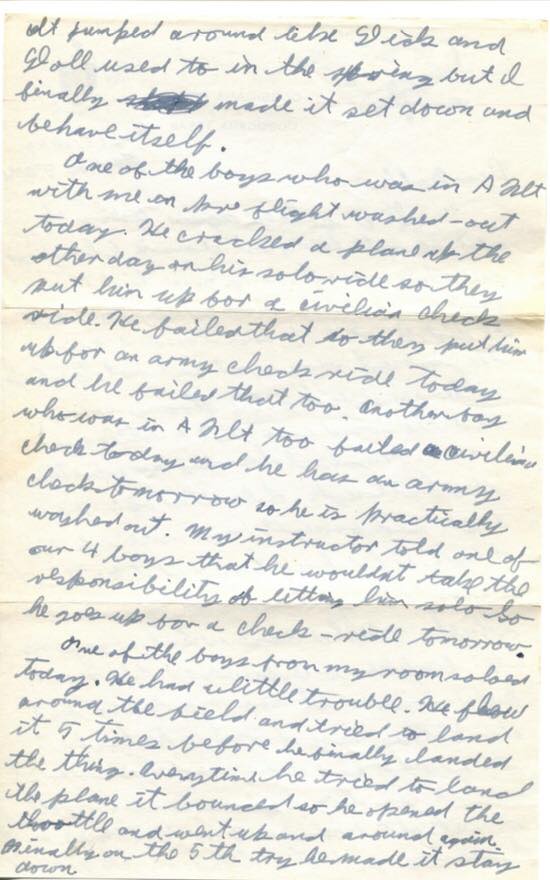 It jumped around like Dick and
Doll used to in the spring but I
finally made it set down and
behave itself.
One of the boys who was in A Flt
with me on Pre flight washed-out
today. He cracked a plane up the
other day on his solo ride so they
put him up for a civilian check
ride. He failed that so they put him
up for an army check ride today
and he failed that too. Another boy
who was in A Flt too failed a civilian
check today and he has an army
check tomorrow so he is practically
washed out. My instructor told one of
our 4 boys that he wouldnt take the
responsibility of letting him solo so
he goes up for a check-ride tomorrow.
One of the boys from my room soloed
today. He had a little trouble. He flew
around the field and tried to land
it 5 times before he finally landed
the thing. Everytime he tried to land
the plane it bounced so he opened the
throttle and went up and around again.
Finally on the 5th try he made it stay
down